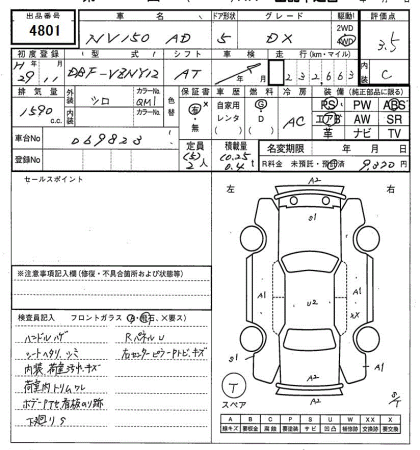 出品番号 車名 ドア形状 グレード 駆動 評価点
4801 NV150 AD 5 DX 2WD 4WD 3.5
初度登録 型式 シフト 車検 走行(km・マイル)
H 29年 11月 DBF-VZNY12 AT 年 月 232,663 C
排気量 外装 カラーNo. 色替 保証書 車歴 燃料 冷房 装備(純正部品に限る)
1590 c.c. シロ QM1 有・無 自家用 G AC PS PW ABS
内装 カラーNo. レンタ D エアB AW SR
( ) ( ) 革 ナビ TV
車台No 069823 定員 積載量 名変期限 年 月 日
登録No (5) 2人 (0.25 0.4t R料金 未預託・預託済 9,820円
セールスポイント
左 右
A2
S1
A1 A1
U2
XX
S1 A1
A2
A2
※注意事項記入欄(修復・不具合箇所および状態等)
検査員記入 フロントガラス (A、飛石、×要ス)
ハンドルハゲ Rパネル U
シートヘタリ、シミ 右センターピラーPトビ、キズ
内装、荷室ヨゴレ・キズ
荷室内トリムワレ
ボデーPTセ看板のリ跡
下廻りS
T
スペア
A B C P S U W X XX ×
線キズ 要板金 腐蝕 要塗装 サビ 凹凸 補修跡 要交換 交換済 要交換